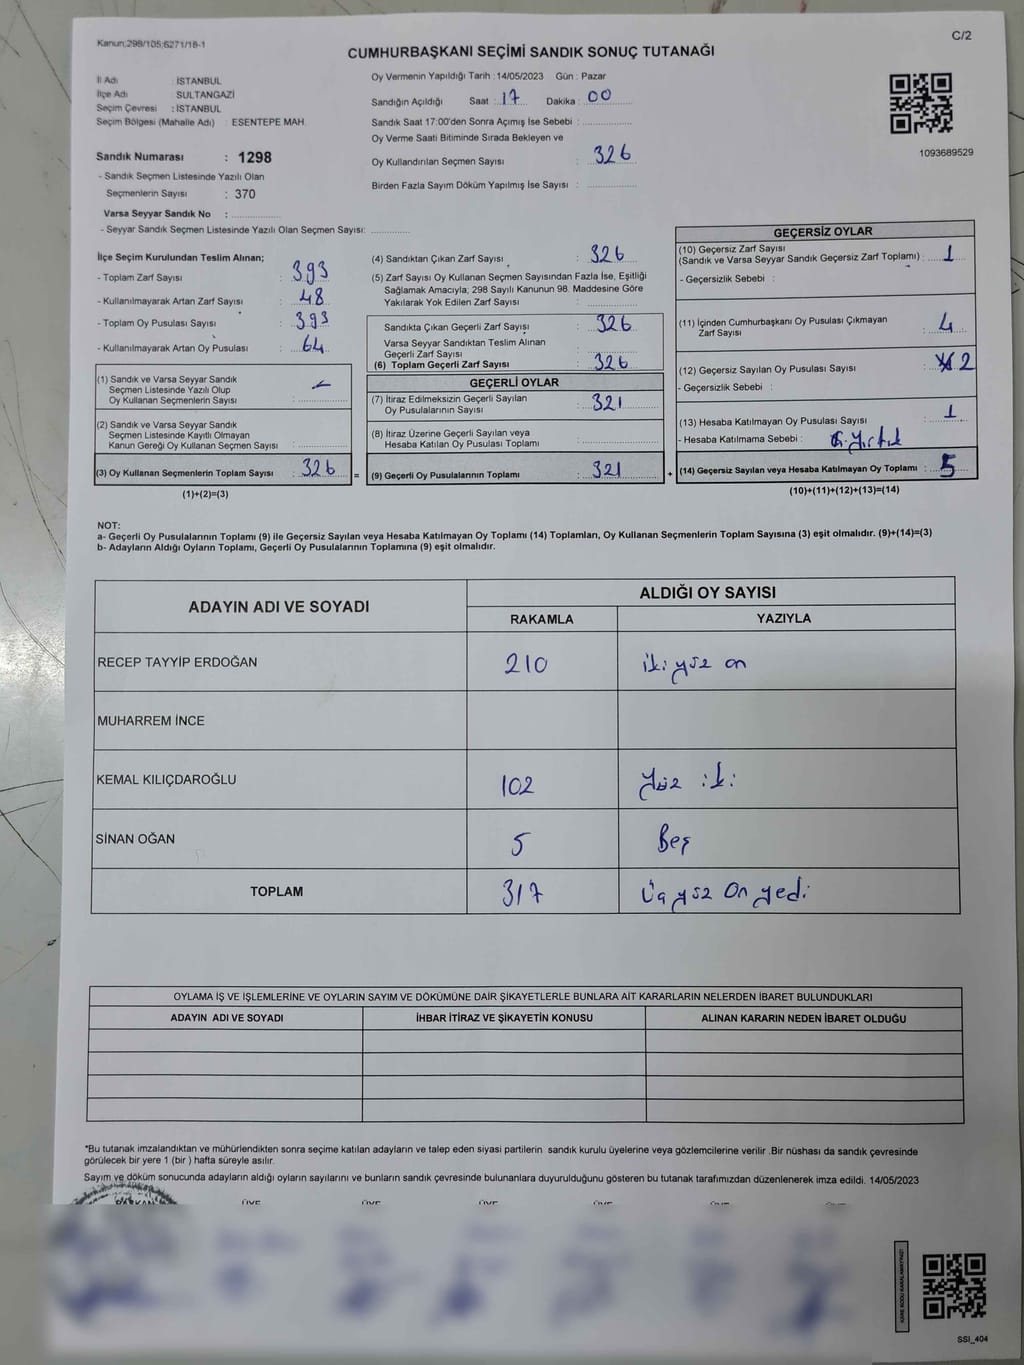 Kanun:298/105;6271/18-1
C/2
CUMHURBAŞKANI SEÇİMİ SANDIK SONUÇ TUTANAĞI
İl Adı : İSTANBUL
İlçe Adı : SULTANGAZİ
Seçim Çevresi : İSTANBUL
Seçim Bölgesi (Mahalle Adı) : ESENTEPE MAH.
Sandık Numarası : 1298
- Sandık Seçmen Listesinde Yazılı Olan
Seçmenlerin Sayısı : 370
Varsa Seyyar Sandık No : ..............
- Seyyar Sandık Seçmen Listesinde Yazılı Olan Seçmen Sayısı: ............
Oy Vermenin Yapıldığı Tarih : 14/05/2023 Gün : Pazar
Sandığın Açıldığı Saat : 17 Dakika : 00
Sandık Saat 17:00'den Sonra Açımış İse Sebebi : ..............
Oy Verme Saati Bitiminde Sırada Bekleyen ve
Oy Kullandırılan Seçmen Sayısı : 326
Birden Fazla Sayım Döküm Yapılmış İse Sayısı : ..............
1093689529
İlçe Seçim Kurulundan Teslim Alınan;
- Toplam Zarf Sayısı : 393
- Kullanılmayarak Artan Zarf Sayısı : 48
- Toplam Oy Pusulası Sayısı : 393
- Kullanılmayarak Artan Oy Pusulası : 64
(1) Sandık ve Varsa Seyyar Sandık
Seçmen Listesinde Yazılı Olup
Oy Kullanan Seçmenlerin Sayısı : ..............
(2) Sandık ve Varsa Seyyar Sandık
Seçmen Listesinde Kayıtlı Olmayan
Kanun Gereği Oy Kullanan Seçmen Sayısı : ..............
(3) Oy Kullanan Seçmenlerin Toplam Sayısı : 326 =
(1)+(2)=(3)
(4) Sandıktan Çıkan Zarf Sayısı : 326
(5) Zarf Sayısı Oy Kullanan Seçmen Sayısından Fazla İse, Eşitliği
Sağlamak Amacıyla, 298 Sayılı Kanunun 98. Maddesine Göre
Yakılarak Yok Edilen Zarf Sayısı : ..............
Sandıkta Çıkan Geçerli Zarf Sayısı : 326
Varsa Seyyar Sandıktan Teslim Alınan
Geçerli Zarf Sayısı : ..............
(6) Toplam Geçerli Zarf Sayısı : 326
GEÇERLİ OYLAR
(7) İtiraz Edilmeksizin Geçerli Sayılan
Oy Pusulalarının Sayısı : 321
(8) İtiraz Üzerine Geçerli Sayılan veya
Hesaba Katılan Oy Pusulası Toplamı : ..............
(9) Geçerli Oy Pusulalarının Toplamı : 321 +
GEÇERSİZ OYLAR
(10) Geçersiz Zarf Sayısı
(Sandık ve Varsa Seyyar Sandık Geçersiz Zarf Toplamı) : 1
- Geçersizlik Sebebi :
(11) İçinden Cumhurbaşkanı Oy Pusulası Çıkmayan
Zarf Sayısı : 4
(12) Geçersiz Sayılan Oy Pusulası Sayısı : 2
- Geçersizlik Sebebi :
(13) Hesaba Katılmayan Oy Pusulası Sayısı : 1
- Hesaba Katılmama Sebebi : yırtık
(14) Geçersiz Sayılan veya Hesaba Katılmayan Oy Toplamı : 5
(10)+(11)+(12)+(13)=(14)
NOT:
a- Geçerli Oy Pusulalarının Toplamı (9) ile Geçersiz Sayılan veya Hesaba Katılmayan Oy Toplamı (14) Toplamları, Oy Kullanan Seçmenlerin Toplam Sayısına (3) eşit olmalıdır. (9)+(14)=(3)
b- Adayların Aldığı Oyların Toplamı, Geçerli Oy Pusulalarının Toplamına (9) eşit olmalıdır.
ADAYIN ADI VE SOYADI ALDIĞI OY SAYISI
RAKAMLA YAZIYLA
RECEP TAYYİP ERDOĞAN 210 iki yüz on
MUHARREM İNCE
KEMAL KILIÇDAROĞLU 102 yüz iki
SİNAN OĞAN 5 Beş
TOPLAM 317 Üç yüz On yedi
OYLAMA İŞ VE İŞLEMLERİNE VE OYLARIN SAYIM VE DÖKÜMÜNE DAİR ŞİKAYETLERLE BUNLARA AİT KARARLARIN NELERDEN İBARET BULUNDUKLARI
ADAYIN ADI VE SOYADI İHBAR İTİRAZ VE ŞİKAYETİN KONUSU ALINAN KARARIN NEDEN İBARET OLDUĞU
*Bu tutanak imzalandıktan ve mühürlendikten sonra seçime katılan adayların ve talep eden siyasi partilerin sandık kurulu üyelerine veya gözlemcilerine verilir .Bir nüshası da sandık çevresinde
görülecek bir yere 1 (bir ) hafta süreyle asılır.
Sayım ve döküm sonucunda adayların aldığı oyların sayılarını ve bunların sandık çevresinde bulunanlara duyurulduğunu gösteren bu tutanak tarafımızdan düzenlenerek imza edildi. 14/05/2023
BAŞKAN ÜYE ÜYE ÜYE ÜYE ÜYE ÜYE
SSI_404